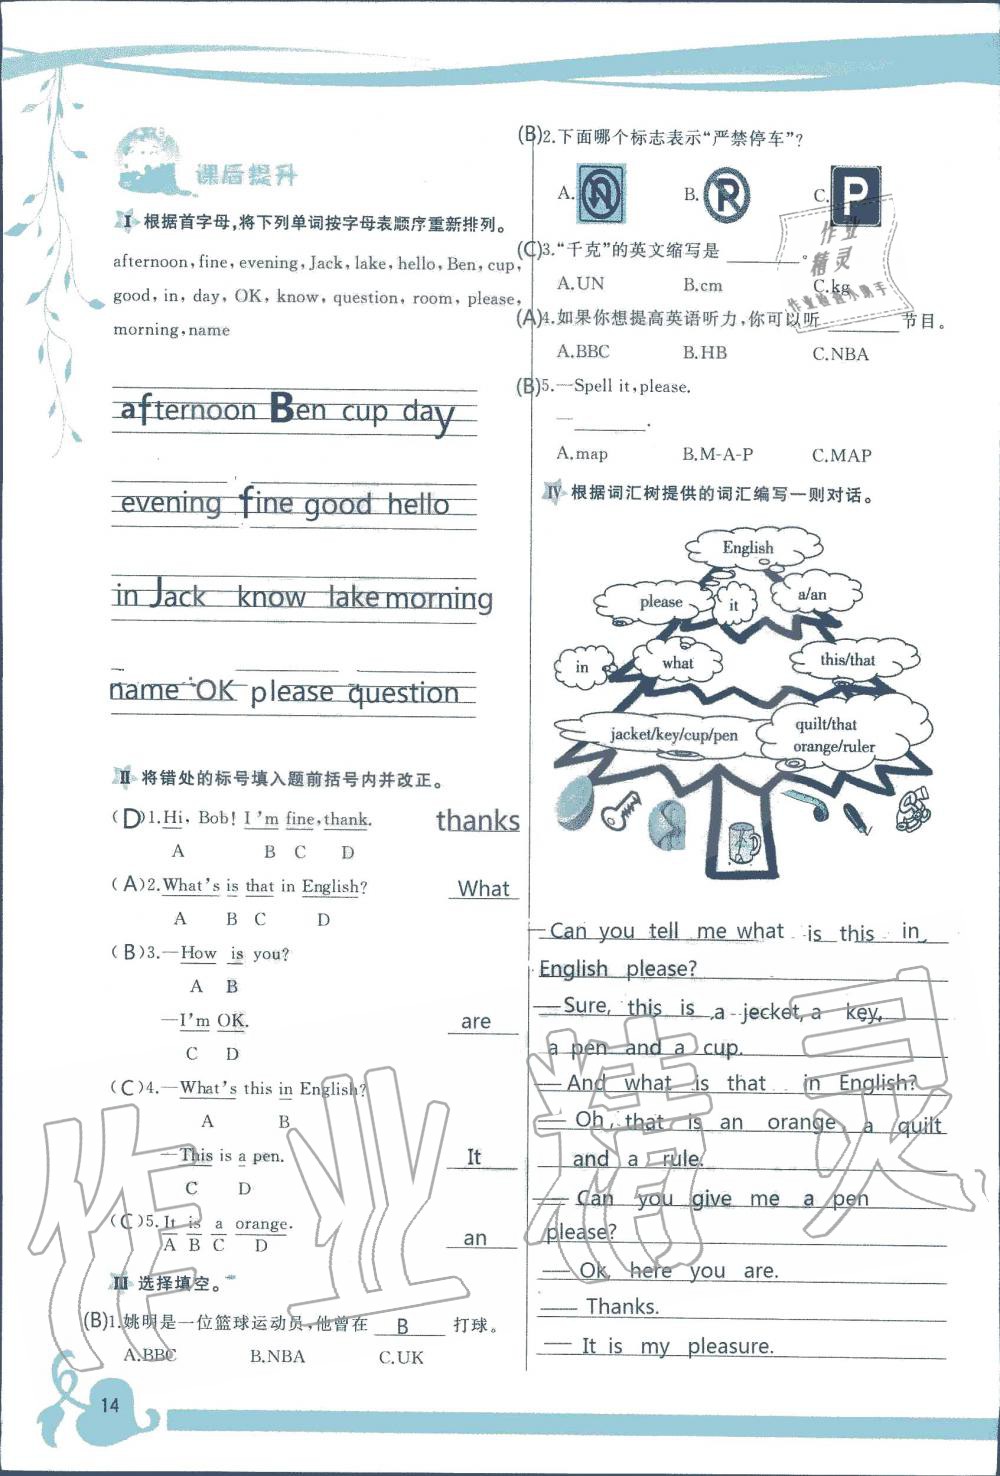 课后提升
Ⅰ 根据首字母,将下列单词按字母表顺序重新排列。
afternoon, fine, evening, Jack, lake, hello, Ben, cup,
good, in, day, OK, know, question, room, please,
morning, name
afternoon Ben cup day
evening fine good hello
in Jack know lake morning
name OK please question
Ⅱ 将错处的标号填入题前括号内并改正。
(D)1.Hi, Bob! I'm fine, thank. thanks
A B C D
(A)2.What's is that in English? What
A B C D
(B)3.—How is you?
A B
—I'm OK. are
C D
(C)4.—What's this in English?
A B
—This is a pen. It
C D
(C)5.It is a orange. an
A B C D
Ⅲ 选择填空。
(B)1.姚明是一位篮球运动员,他曾在 B 打球。
A.BBC B.NBA C.UK
14
(B)2.下面哪个标志表示“严禁停车”?
A. B. P C. P
(C)3.“千克”的英文缩写是 ______。
A.UN B.cm C.kg
(A)4.如果你想提高英语听力,你可以听 ______ 节目。
A.BBC B.HB C.NBA
(B)5.—Spell it, please.
— ______.
A.map B.M-A-P C.MAP
Ⅳ 根据词汇树提供的词汇编写一则对话。
English
please it a/an
in what this/that
jacket/key/cup/pen quilt/that
orange/ruler
—Can you tell me what is this in
English please?
—Sure, this is a jecket, a key,
a pen and a cup.
—And what is that in English?
—Oh, that is an orange a quilt
and a rule.
—Can you give me a pen
please?
—Ok, here you are.
—Thanks.
—It is my pleasure.
作业精灵
作业
精灵
作业检查小助手